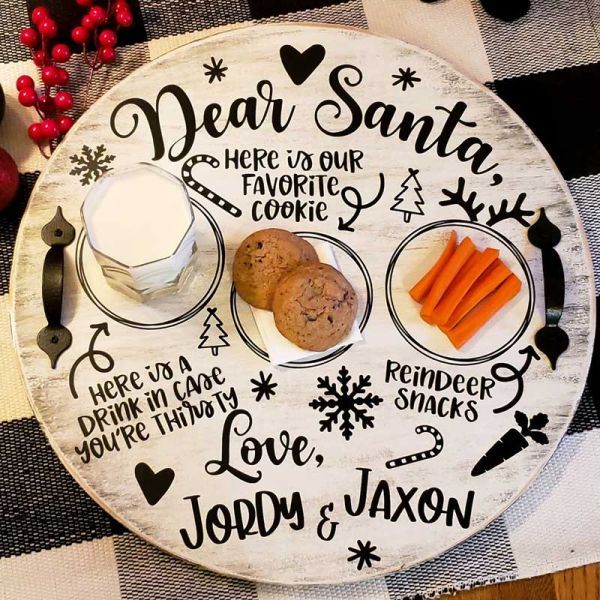 Dear Santa,
HERE is OUR
FAVORITE
COOKIE
HERE is A
DRINK iN CASE
YOU'RE THIRSTY
REiNDEER
SNACKS
Love,
JORDY & JAXON